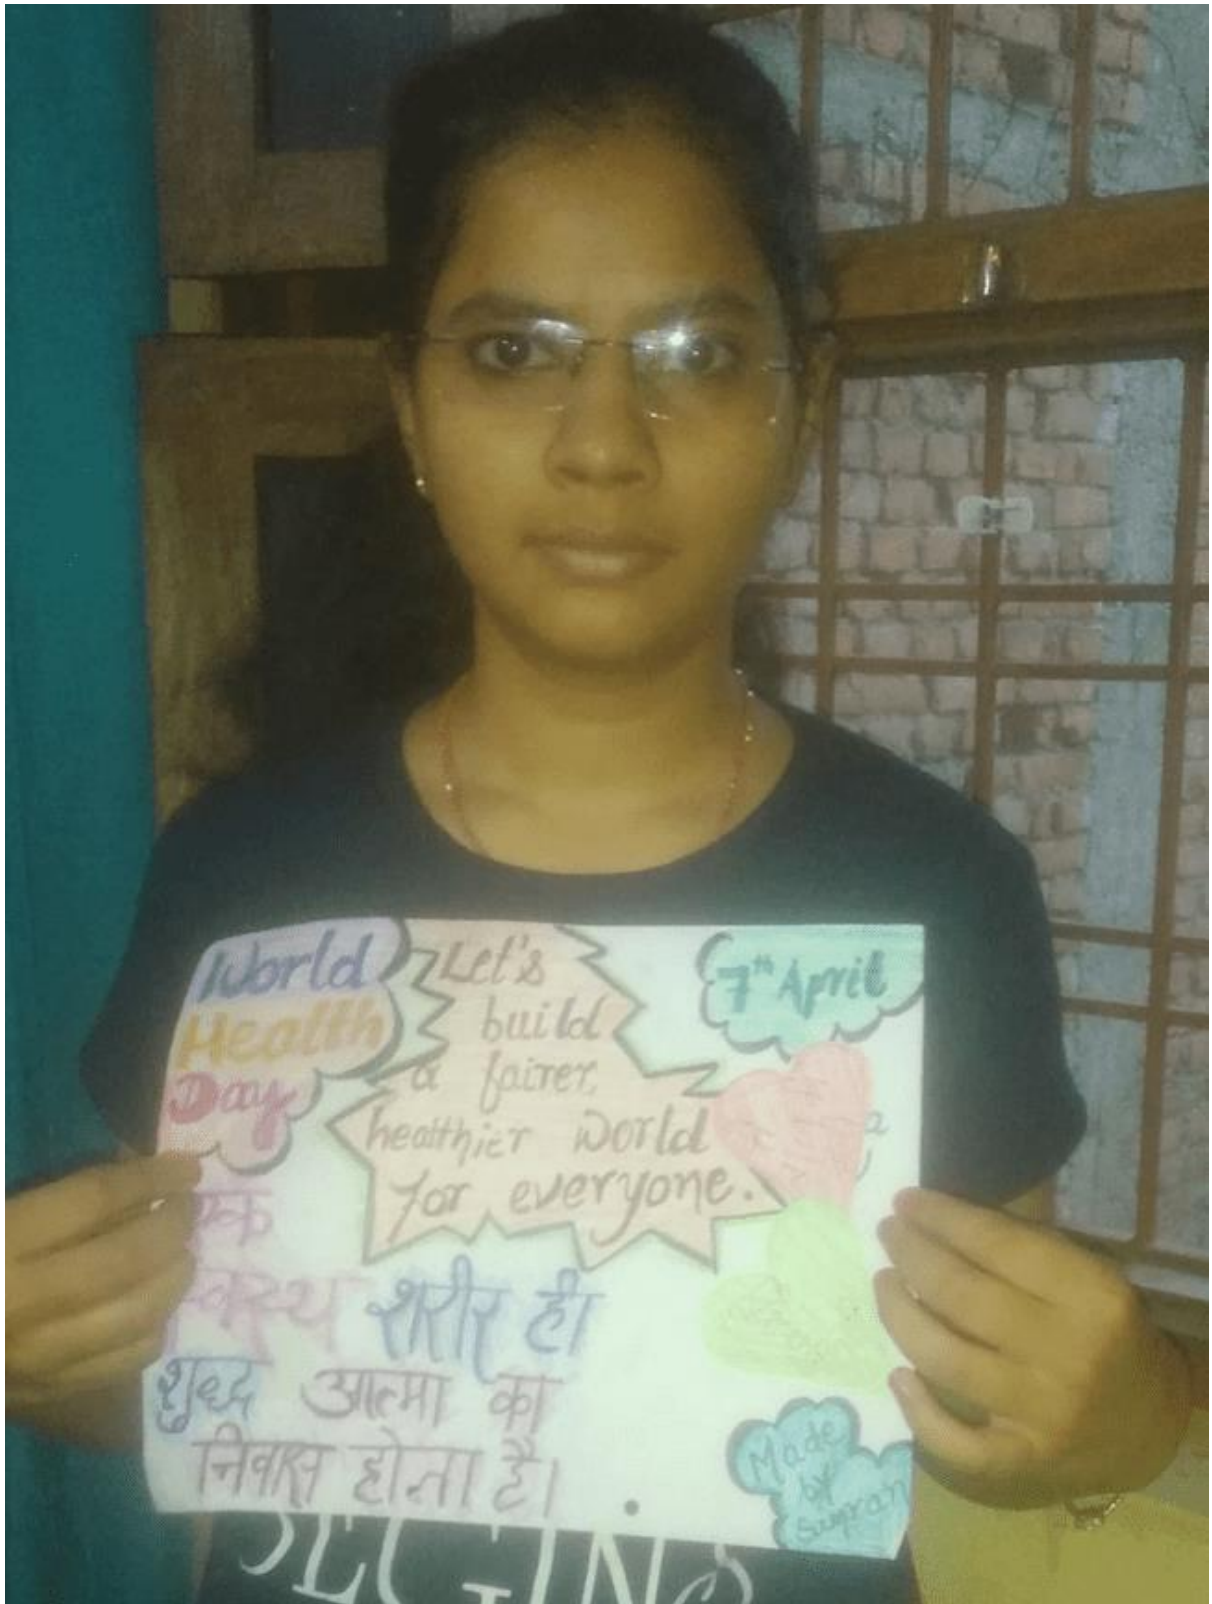 World
Health
Day
Let's
build
a fairer,
healthier world
for everyone.
7th April
एक
स्वस्थ शरीर ही
शुद्ध आत्मा का
निवास होता है।
Made
by
BEGINS